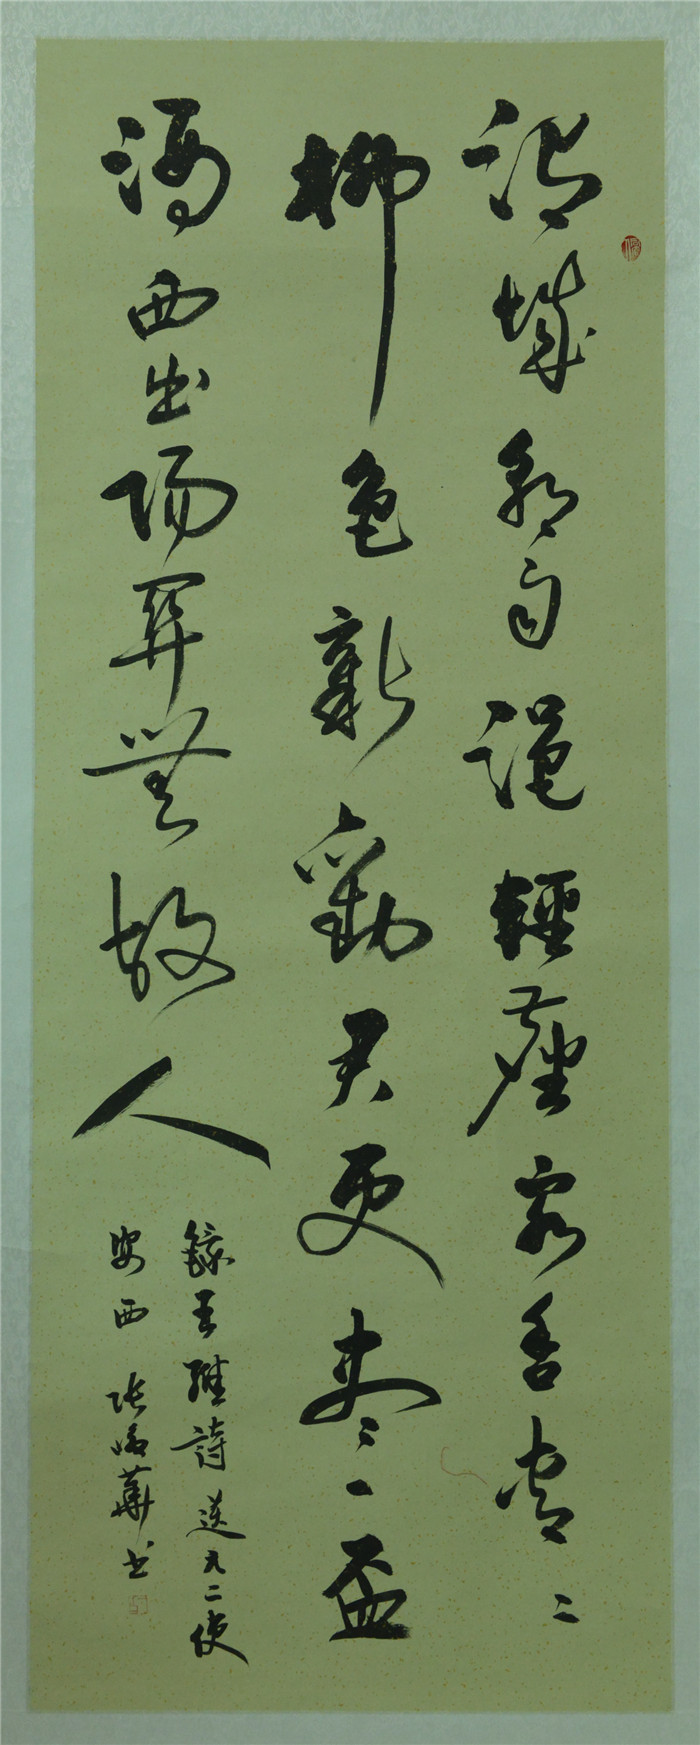 渭城朝雨浥輕塵客舍青〻
柳色新勸君更盡一盃
酒西出陽關無故人
錄王維詩送元二使
安西 張華书